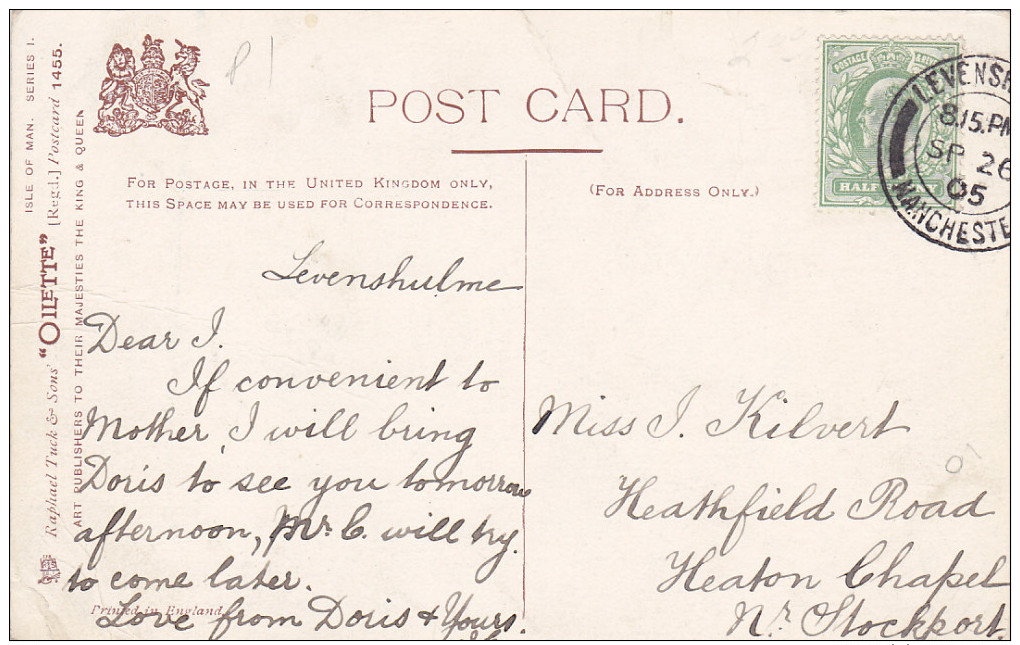 ISLE OF MAN. SERIES I.
Raphael Tuck & Sons' "OILETTE" [Regd.] Postcard 1455.
ART PUBLISHERS TO THEIR MAJESTIES THE KING & QUEEN
POST CARD.
FOR POSTAGE, IN THE UNITED KINGDOM ONLY,
THIS SPACE MAY BE USED FOR CORRESPONDENCE.
(FOR ADDRESS ONLY.)
POSTAGE
HALF
LEVENSH
8.15.PM
SP 26
05
MANCHESTE
Levenshulme
Dear I.
If convenient to
Mother, I will bring
Doris to see you tomorrow
afternoon, Mr. C. will try
to come later.
Love from Doris & Yours.
Printed in England
Miss I. Kilvert
Heathfield Road
Heaton Chapel
Nr. Stockport.